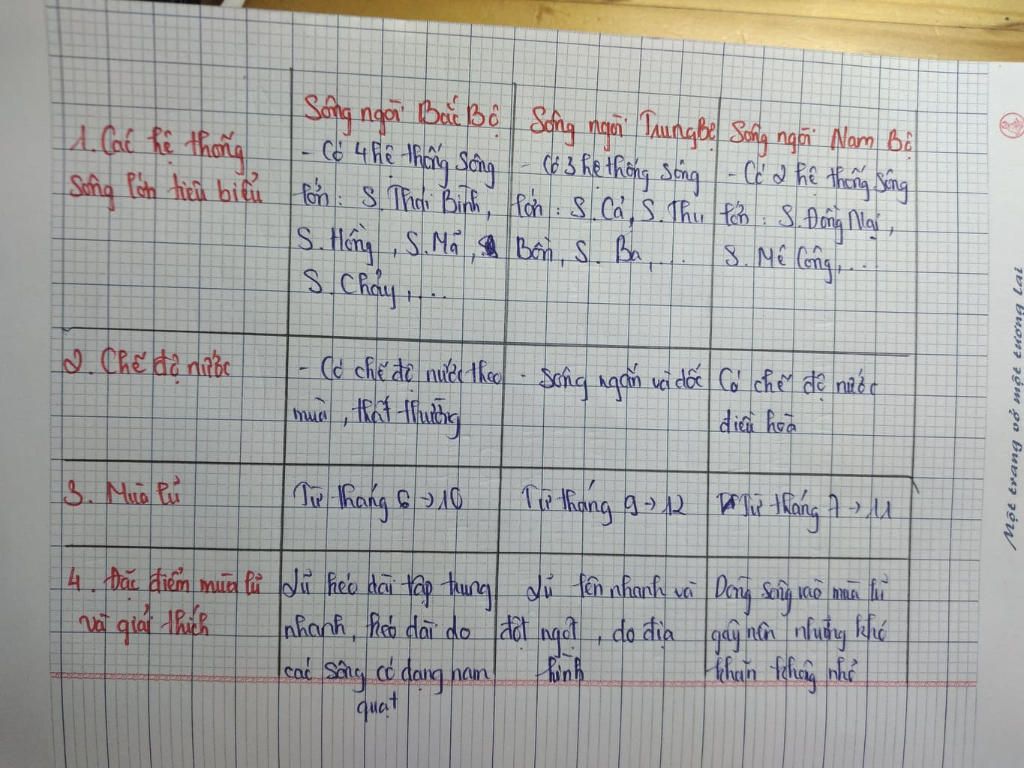 Sông ngòi Bắc Bộ
Sông ngòi Trung Bộ
Sông ngòi Nam Bộ
1. Các hệ thống
sông lớn tiêu biểu
- Có 4 hệ thống sông
lớn: S. Thái Bình,
S. Hồng, S. Mã,
S. Chảy,...
- Có 3 hệ thống sông
lớn: S. Cả, S. Thu
Bồn, S. Ba,...
- Có 2 hệ thống sông
lớn: S. Đồng Nai,
S. Mê Công,...
2. Chế độ nước
- Có chế độ nước theo
mùa, thất thường
- Sông ngắn và dốc
Có chế độ nước
điều hoà
3. Mùa lũ
Từ tháng 6 → 10
Từ tháng 9 → 12
Từ tháng 7 → 11
4. Đặc điểm mùa lũ
và giải thích
Lũ kéo dài tập trung
nhanh, kéo dài do
các sông có dạng nam
quạt
Lũ lên nhanh và
đột ngột, do địa
hình
Dòng sông vào mùa lũ
gây nên những khó
khăn không nhỏ
Một trang vở một tương lai